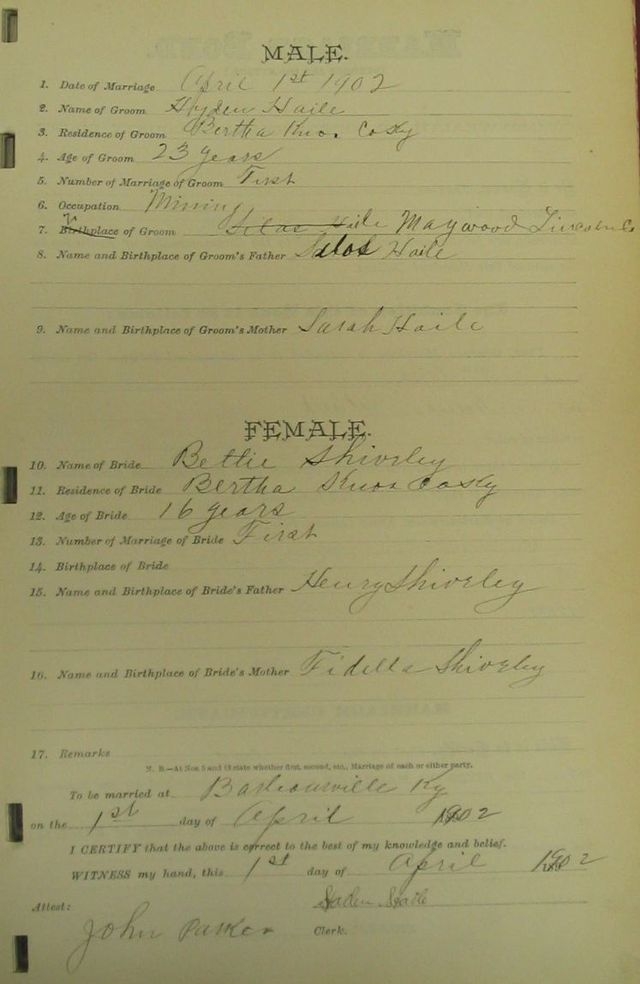 MALE.
1. Date of Marriage April 1st 1902
2. Name of Groom Hyden Haile
3. Residence of Groom Bertha Knox Co Ky
4. Age of Groom 23 years
5. Number of Marriage of Groom First
6. Occupation Mining
7. Birthplace of Groom Silas Haile Maywood Lincoln Co
8. Name and Birthplace of Groom's Father Silas Haile
9. Name and Birthplace of Groom's Mother Sarah Haile
FEMALE.
10. Name of Bride Bettie Shiveley
11. Residence of Bride Bertha Knox Co Ky
12. Age of Bride 16 years
13. Number of Marriage of Bride First
14. Birthplace of Bride
15. Name and Birthplace of Bride's Father Henry Shiveley
16. Name and Birthplace of Bride's Mother Fidella Shiveley
17. Remarks
N. B.—At Nos 5 and 13 state whether first, second, etc., Marriage of each or either party.
To be married at Barbourville Ky
on the 1st day of April 1902
I CERTIFY that the above is correct to the best of my knowledge and belief.
WITNESS my hand, this 1st day of April 1902
Haden Haile
Attest: Clerk.
John Parker